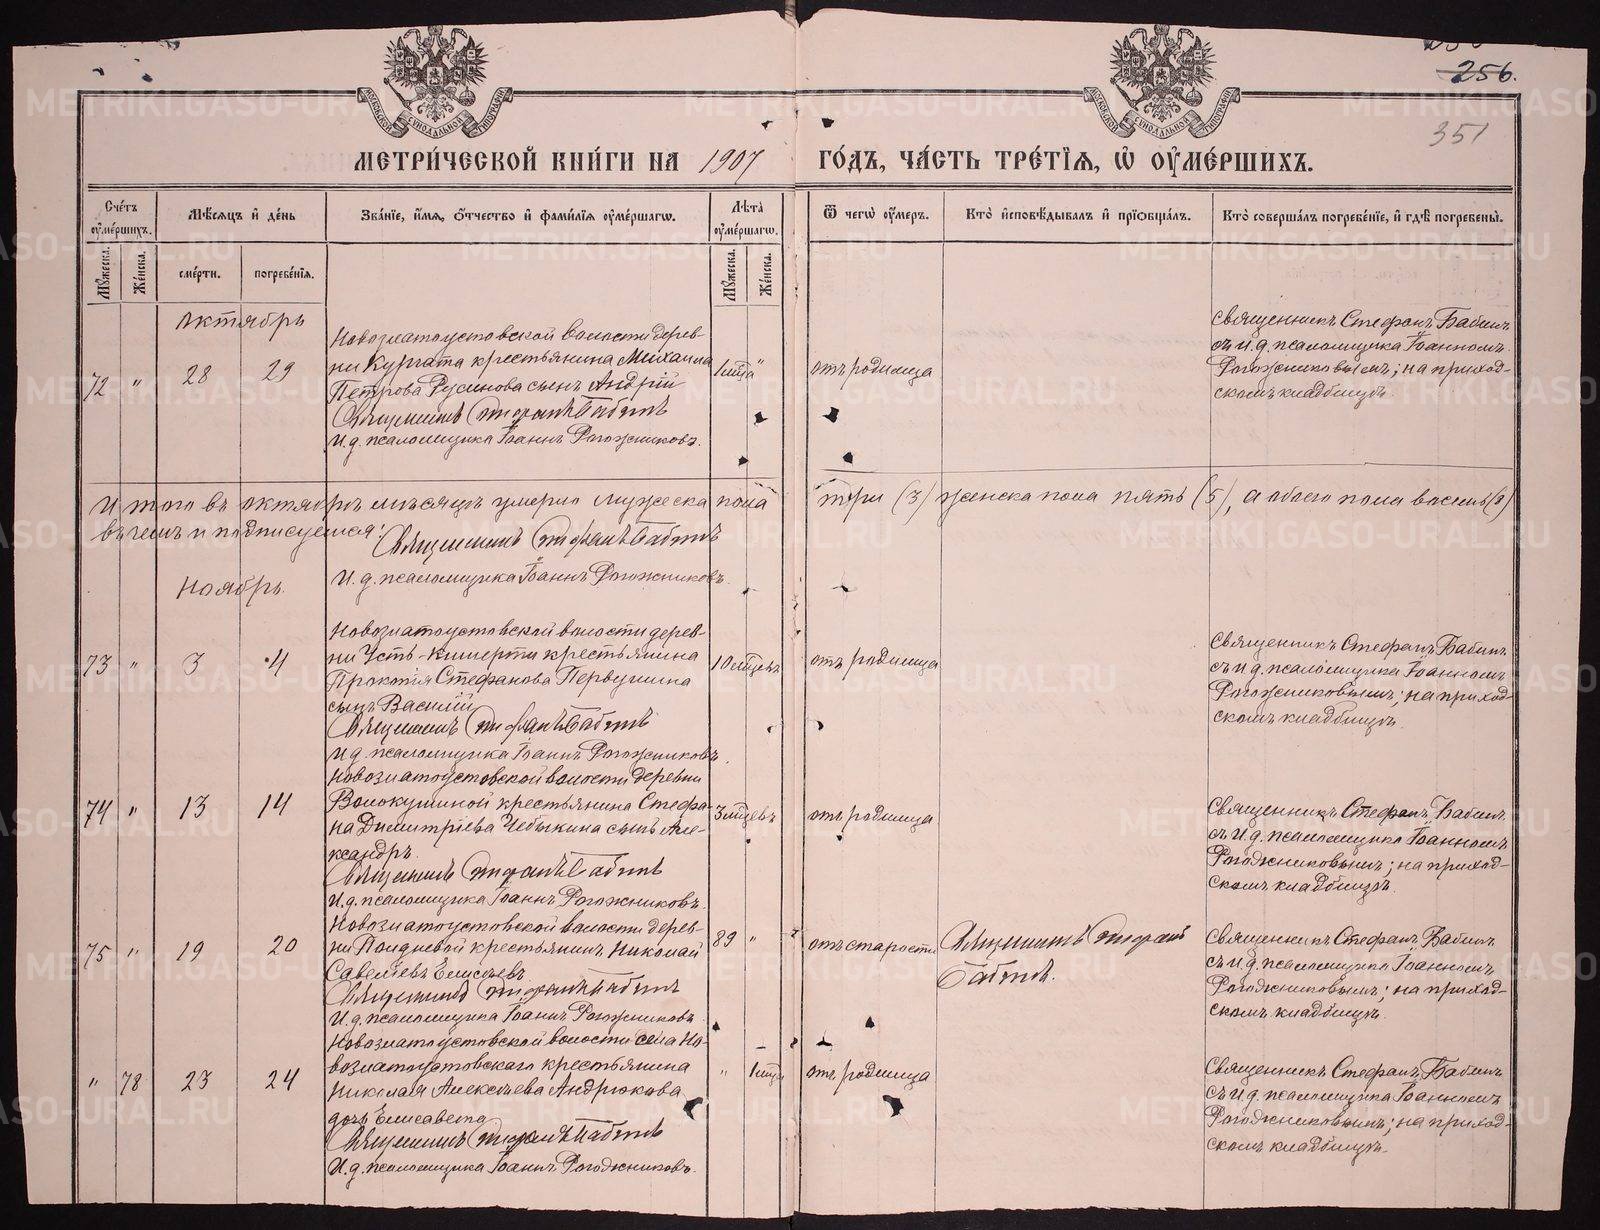 256.
351
МОСКОВСКОЙ СѴНОДАЛЬНОЙ ТИПОГРАФІИ
МОСКОВСКОЙ СѴНОДАЛЬНОЙ ТИПОГРАФІИ
МЕТРИ́ЧЕСКОЙ КНИ́ГИ НА 1907 ГО́ДЪ, ЧА́СТЬ ТРЕ́ТІѦ, Ѡ҆ ОУ҆МЕ́РШИХЪ.
Сче́тъ оу҆ме́ршихъ.
Мѣ́сѧцъ и҆ де́нь
Зва́ніе, и҆́мѧ, ѻ҆́тчество и҆ фами́лїѧ оу҆ме́ршагѡ.
Лѣ́та оу҆ме́ршагѡ.
Ѿ чегѡ̀ оу҆́меръ.
Кто̀ и҆сповѣ́дывалъ и҆ прїѡбща́лъ.
Кто̀ соверша́лъ погребе́нїе, и҆ гдѣ̀ погребены̀.
Мꙋ́жеска.
Же́нска.
сме́рти.
погребе́нїѧ.
Мꙋ́жеска.
Же́нска.
Октябрь
72 " 28 29
Новозлатоустовской волости дерев-
ни Кургата крестьянина Михаила
Петрова Русинова сынъ Андрій
Священникъ Стефанъ Бабинъ
И.д. псаломщика Іоаннъ Рогожниковъ.
1 мѣца "
отъ родимца
Священникъ Стефанъ Бабинъ
съ и.д. псаломщика Іоанномъ
Рогожниковымъ; на приход-
скомъ кладбищѣ.
Итого въ октябрѣ мѣсяцѣ умерло мужеска пола три (3) женска пола пять (5), а обоего пола восемь (8)
въ чемъ и подписуемся:
Священникъ Стефанъ Бабинъ
И.д. псаломщика Іоаннъ Рогожниковъ.
Ноябрь.
73 " 3 4
Новозлатоустовской волости дерев-
ни Усть-Кишерти крестьянина
Прокопія Стефанова Первушина
сынъ Василій
Священникъ Стефанъ Бабинъ
И.д. псаломщика Іоаннъ Рогожниковъ.
10 мѣцевъ
отъ родимца
Священникъ Стефанъ Бабинъ
съ и.д. псаломщика Іоанномъ
Рогожниковымъ; на приход-
скомъ кладбищѣ.
74 " 13 14
Новозлатоустовской волости деревни
Волокушиной крестьянина Стефа-
на Димитріева Чебыкина сынъ Але-
ксандръ.
Священникъ Стефанъ Бабинъ
И.д. псаломщика Іоаннъ Рогожниковъ.
3 мѣцевъ
отъ родимца
Священникъ Стефанъ Бабинъ
съ и.д. псаломщика Іоанномъ
Рогожниковымъ; на приход-
скомъ кладбищѣ.
75 " 19 20
Новозлатоустовской волости дерев-
ни Полдневой крестьянинъ Николай
Савеліевъ Елисѣевъ
Священникъ Стефанъ Бабинъ
И.д. псаломщика Іоаннъ Рогожниковъ.
89 "
отъ старости
Священникъ Стефанъ
Бабинъ.
Священникъ Стефанъ Бабинъ
съ и.д. псаломщика Іоанномъ
Рогожниковымъ; на приход-
скомъ кладбищѣ.
" 78 23 24
Новозлатоустовской волости села Но-
возлатоустовскаго крестьянина
Николая Алексѣева Андрюкова
дочь Елисавета
Священникъ Стефанъ Бабинъ
И.д. псаломщика Іоаннъ Рогожниковъ.
" 1 мѣца
отъ родимца
Священникъ Стефанъ Бабинъ
съ и.д. псаломщика Іоанномъ
Рогожниковымъ; на приход-
скомъ кладбищѣ.
METRIKI.GASO-URAL.RU